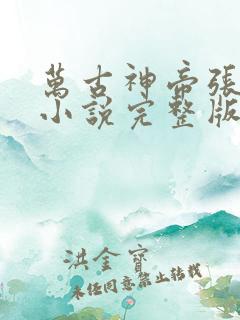 萬古神帝張
小說完整版
洪金寶
未經同意禁止轉載